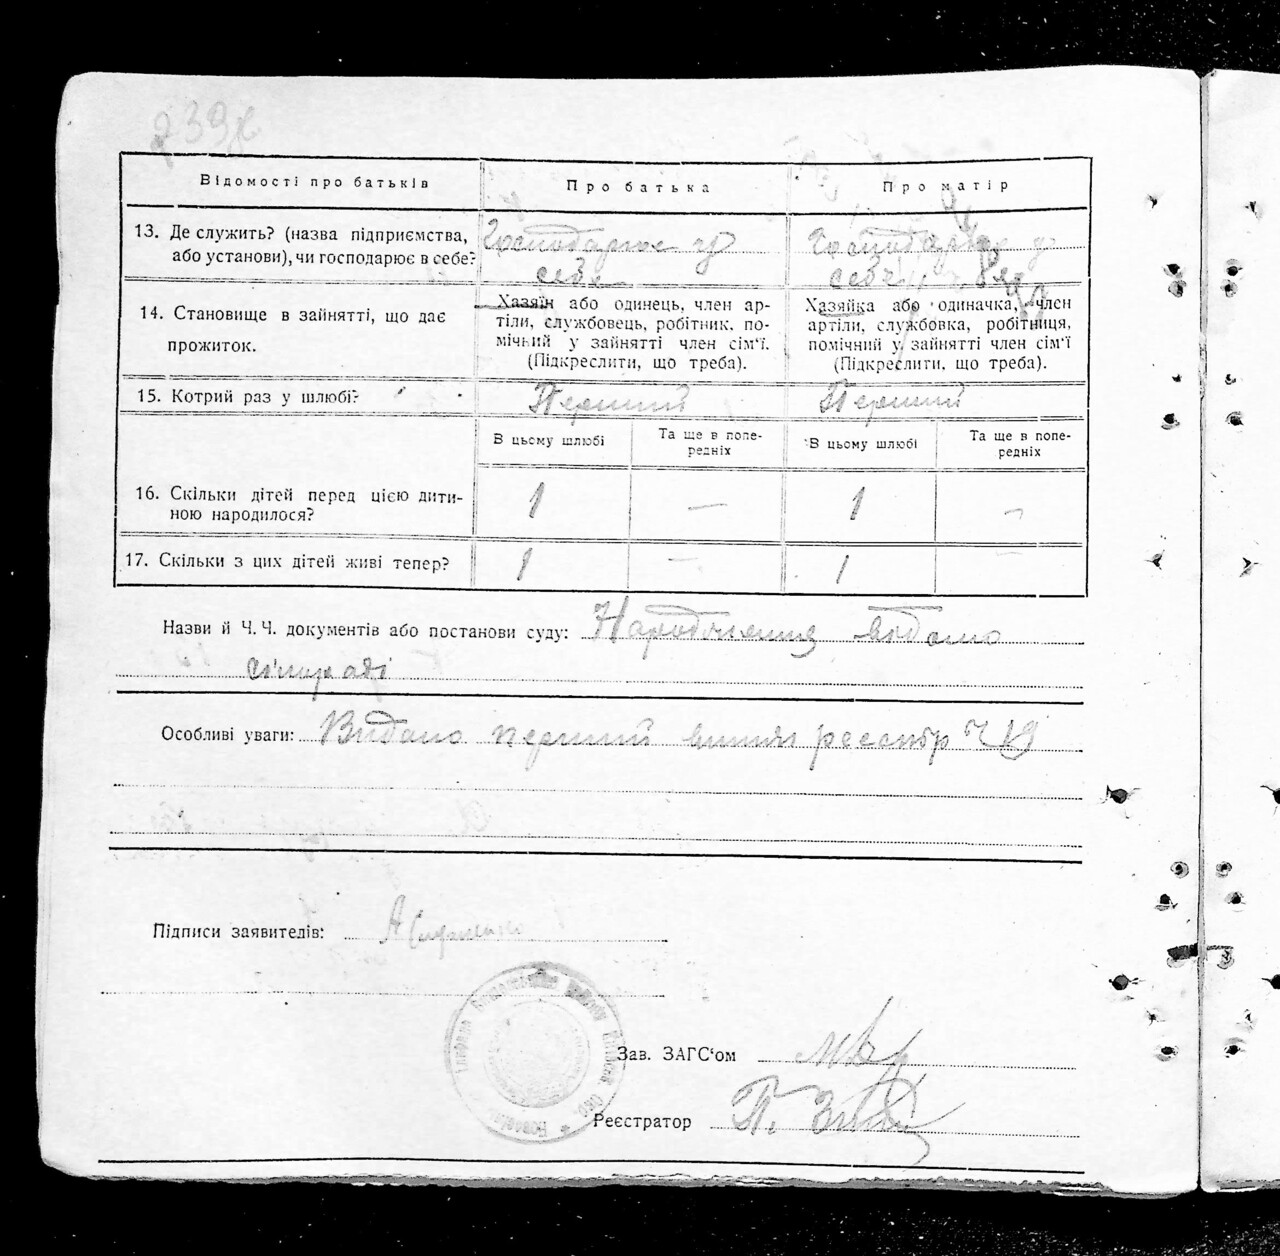 Відомості про батьків
Про батька
Про матір
13. Де служить? (назва підприємства,
або установи), чи господарює в себе?
Господарює у
себе
Господарює у
себе
14. Становище в зайнятті, що дає
прожиток.
Хазяїн або одинець, член ар-
тіли, службовець, робітник, по-
мічний у зайнятті член сім'ї.
(Підкреслити, що треба).
Хазяйка або одиначка, член
артіли, службовка, робітниця,
помічний у зайнятті член сім'ї
(Підкреслити, що треба).
15. Котрий раз у шлюбі?
Перший
Перший
В цьому шлюбі
Та ще в попе-
редніх
В цьому шлюбі
Та ще в попе-
редніх
16. Скільки дітей перед цією дити-
ною народилося?
1 — 1 —
17. Скільки з цих дітей живі тепер?
1 — 1 —
Назви й Ч. Ч. документів або постанови суду: Народження відомо
сільраді
Особливі уваги: Видано перший реєстр Ч 19
Підписи заявителів:
Зав. ЗАГС'ом
Реєстратор П.